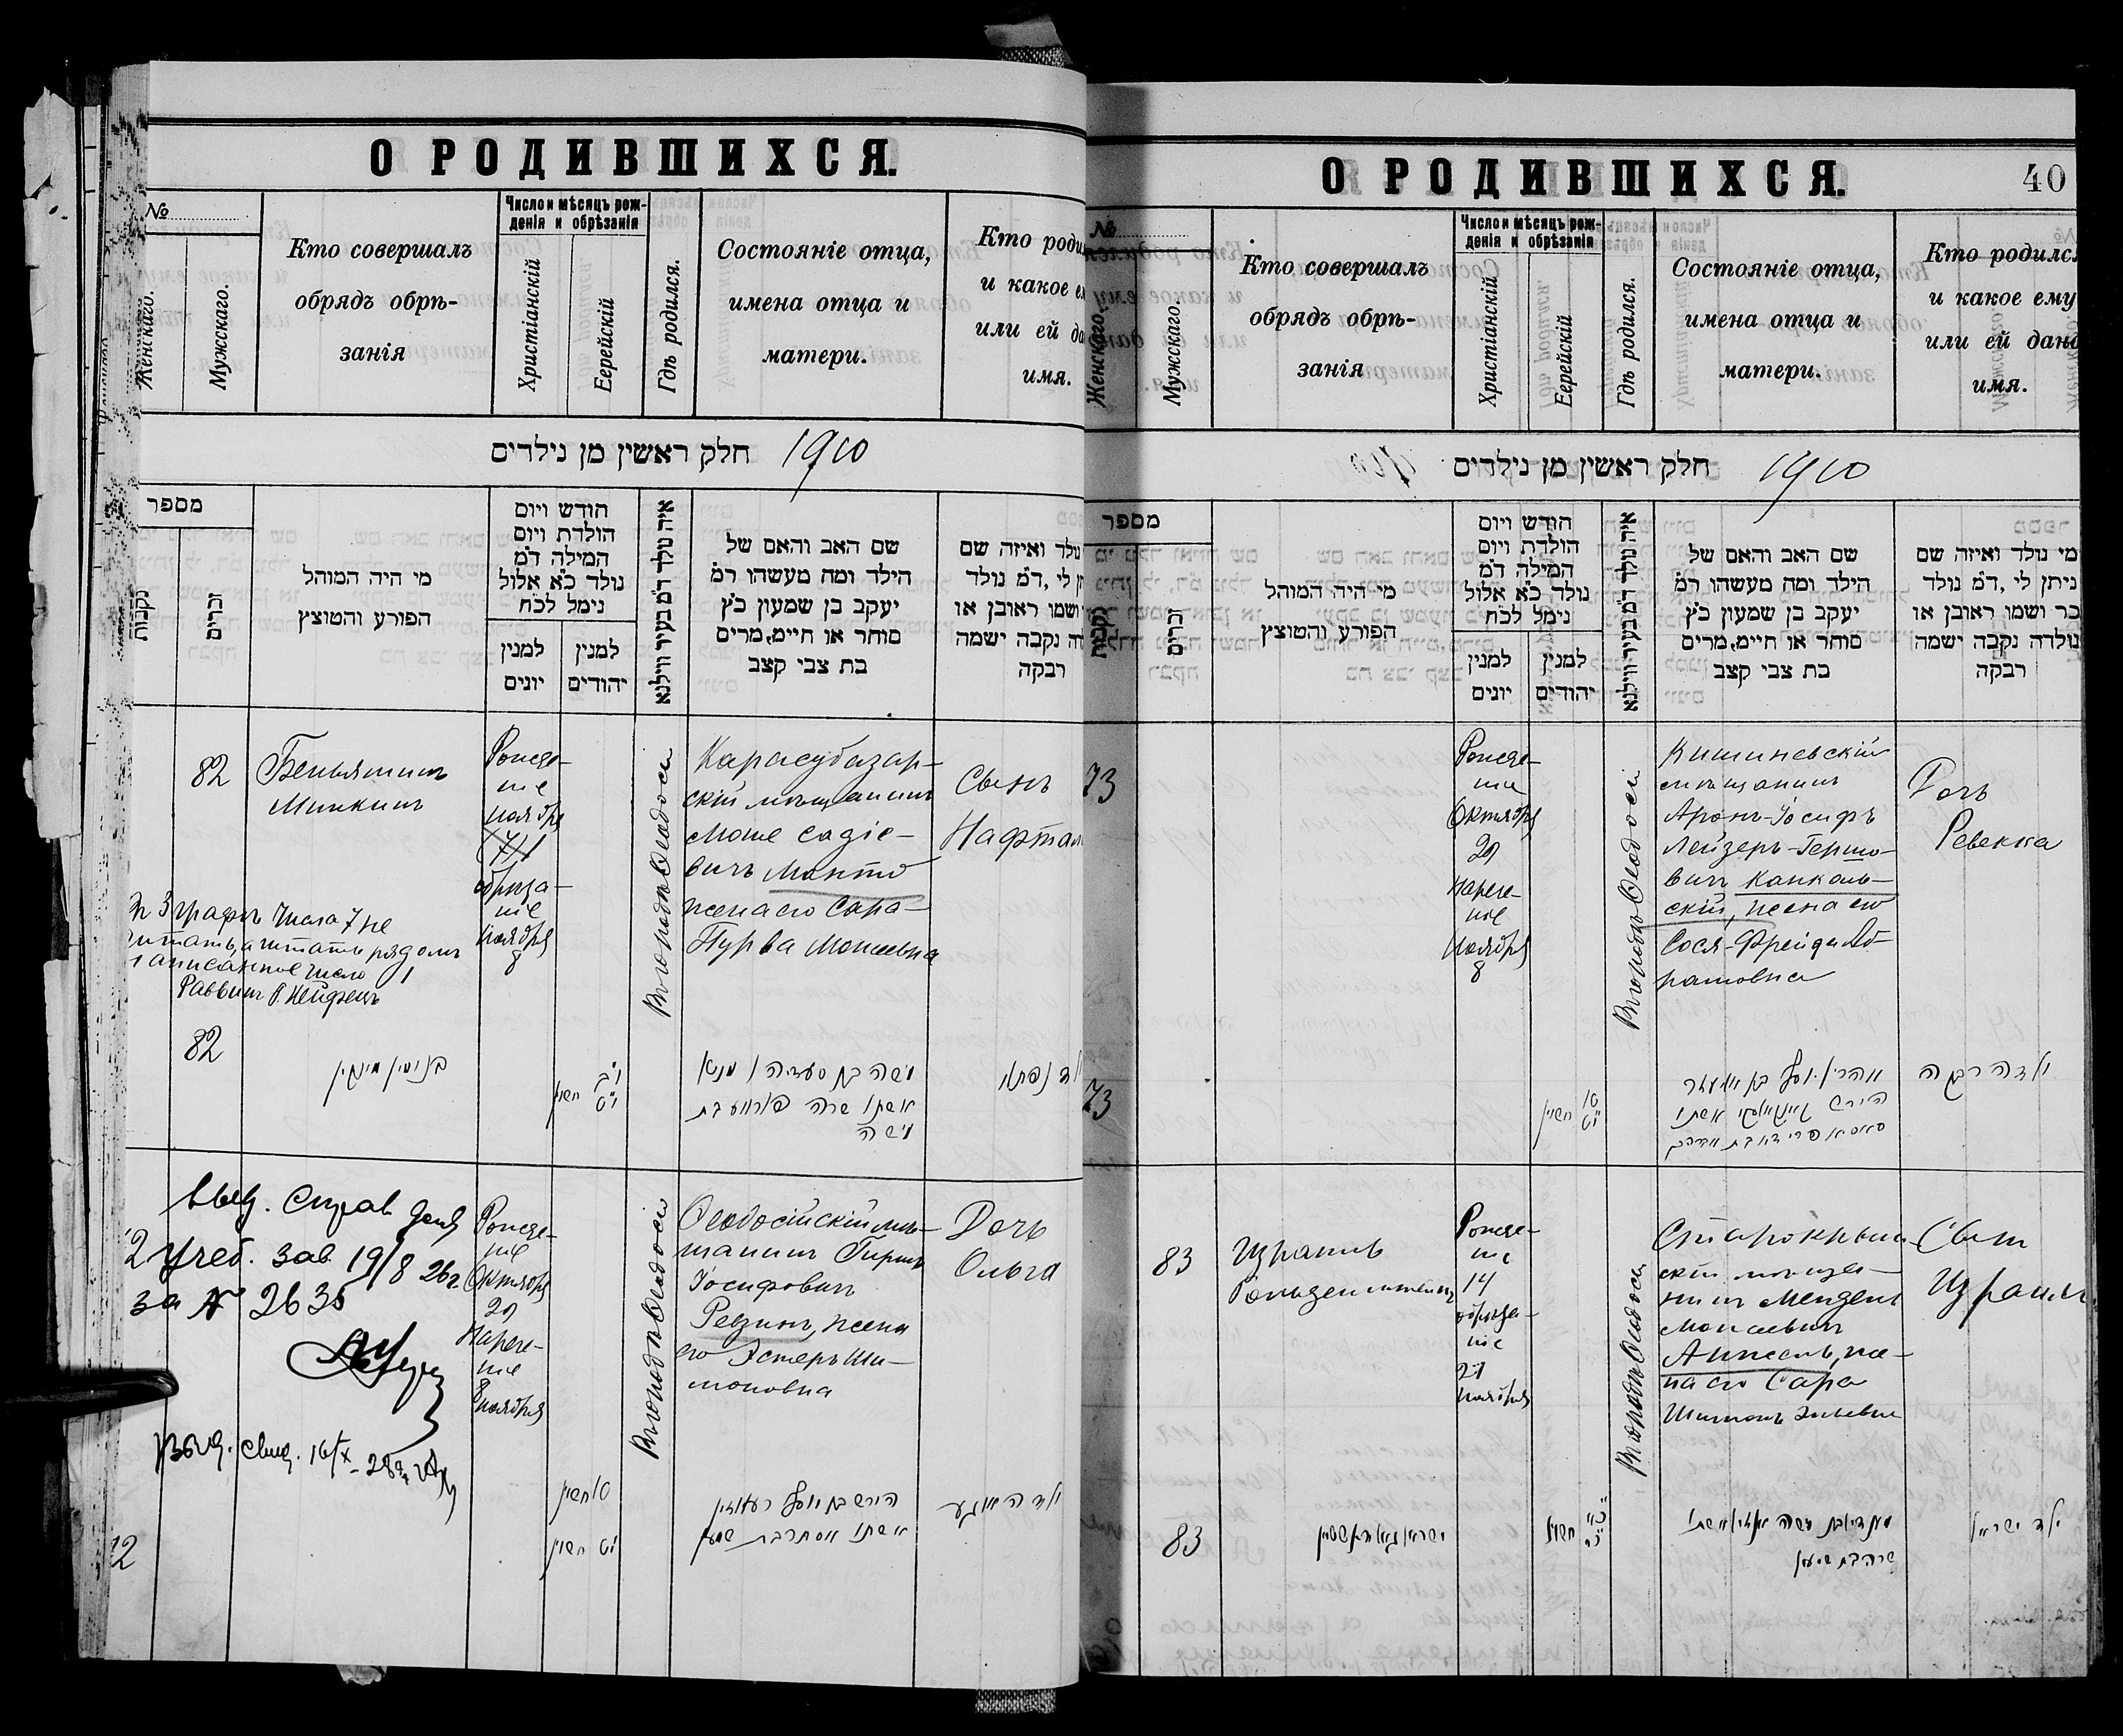 О РОДИВШИХСЯ.
№
Женскаго.
Мужскаго.
Кто совершалъ
обрядъ обрѣ-
занія
Число и мѣсяцъ рож-
денія и обрѣзанія
Христіанскій
Еерейскій
Гдѣ родился.
Состояніе отца,
имена отца и
матери.
Кто роди
и какое е
или ей да
имя.
חלק ראשין מן נילדים 1910
מספר
נקבות
זכרים
מי היה המוהל
הפורע והטוצץ
הודש ויום
הולדת ויום
המילה ד״מ
נולד כ״א אלול
נימל לכ״ח
למנין
יונים
למנין
יהודים
איה נולד ד״מ בעיר ווילנא
שם האב והאם של
הילד ומה מעשהו ר״מ
יעקב בן שמעון כ״ץ
סוחר או חיים, מרים
בת צבי קצב
נולד ואיזה שם
ן לי, ד״מ נולד
ושמו ראובן או
דה נקבה ישמה
רבקה
82
Беньяминъ
Минкинъ
Рожде-
ніе
ноября
1
обрѣза-
ніе
ноября
8
Въ городѣ Ѳеодосіи
Карасубазар-
скій мѣщанинъ
Моше Садіе-
вичъ Мангто
жена его Сара-
Пурва Моисеевна
Сынъ
Нафтал
3 графѣ числа 7 не
читать, а читать рядомъ
написанное число 1
Раввинъ
82
בנימין מינקין
י״ב
י״ט חשון
משה בן סעדיה מנטא
אשתו שרה פורווע בת
משה
ילד נפתלי
Выд. справ. для
учеб. зав. 19/8 26 г.
за № 2635
Выд. Свид. 16/X - 28 г.
Рожде-
ніе
Октября
29
Нарече-
ніе
8 ноября
Въ городѣ Ѳеодосіи
Ѳеодосійскій мѣ-
щанинъ Гиршъ
Іосифовичъ
Ревзинъ, жена
его Эстеръ Ши-
моновна
Дочь
Ольга
72
ט׳ חשון
י״ט חשון
הירש בן יוסף רעווזין
אשתו אסתר בת שמעון
ילדה אלגע
О РОДИВШИХСЯ.
40
№
Женскаго.
Мужскаго.
Кто совершалъ
обрядъ обрѣ-
занія
Число и мѣсяцъ рож-
денія и обрѣзанія
Христіанскій
Еерейскій
Гдѣ родился.
Состояніе отца,
имена отца и
матери.
Кто родился
и какое ему
или ей дано
имя.
חלק ראשין מן נילדים 1910
מספר
נקבות
זכרים
מי היה המוהל
הפורע והטוצץ
הודש ויום
הולדת ויום
המילה ד״מ
נולד כ״א אלול
נימל לכ״ח
למנין
יונים
למנין
יהודים
איה נולד ד״מ בעיר ווילנא
שם האב והאם של
הילד ומה מעשהו ר״מ
יעקב בן שמעון כ״ץ
סוחר או חיים, מרים
בת צבי קצב
מי נולד ואיזה שם
ניתן לי, ד״מ נולד
זכר ושמו ראובן או
נולדה נקבה ישמה
רבקה
73
Рожде-
ніе
Октября
29
Нарече-
ніе
Ноября
8
Въ городѣ Ѳеодосіи
Кишиневскій
мѣщанинъ
Аронъ-Іосифъ
Лейзеръ-Гершо-
вичъ Канколь-
скій, жена его
Сося-Фрейда Аб-
рамовна
Дочь
Ревекка
73
י״ט חשון
אהרן יוסף בן אליעזר
הירש קאנקאלסקי אשתו
סאסיא פריידא בת אברהם
ילדה רבקה
83
Израиль
Гольденштейнъ
Рожде-
ніе
14
обрѣза-
ніе
21
ноября
Въ городѣ Ѳеодосіи
Старокрым-
скій мѣща-
нинъ Мендель
Моисеевичъ
Анжель, же-
на его Сара
Шимонъ Эльевна
Сынъ
Израиль
83
ישראל גאלדענשטיין
חשון
מענדיל בן משה אנזיל אשתו
שרה בת שמעון
ילד ישראל